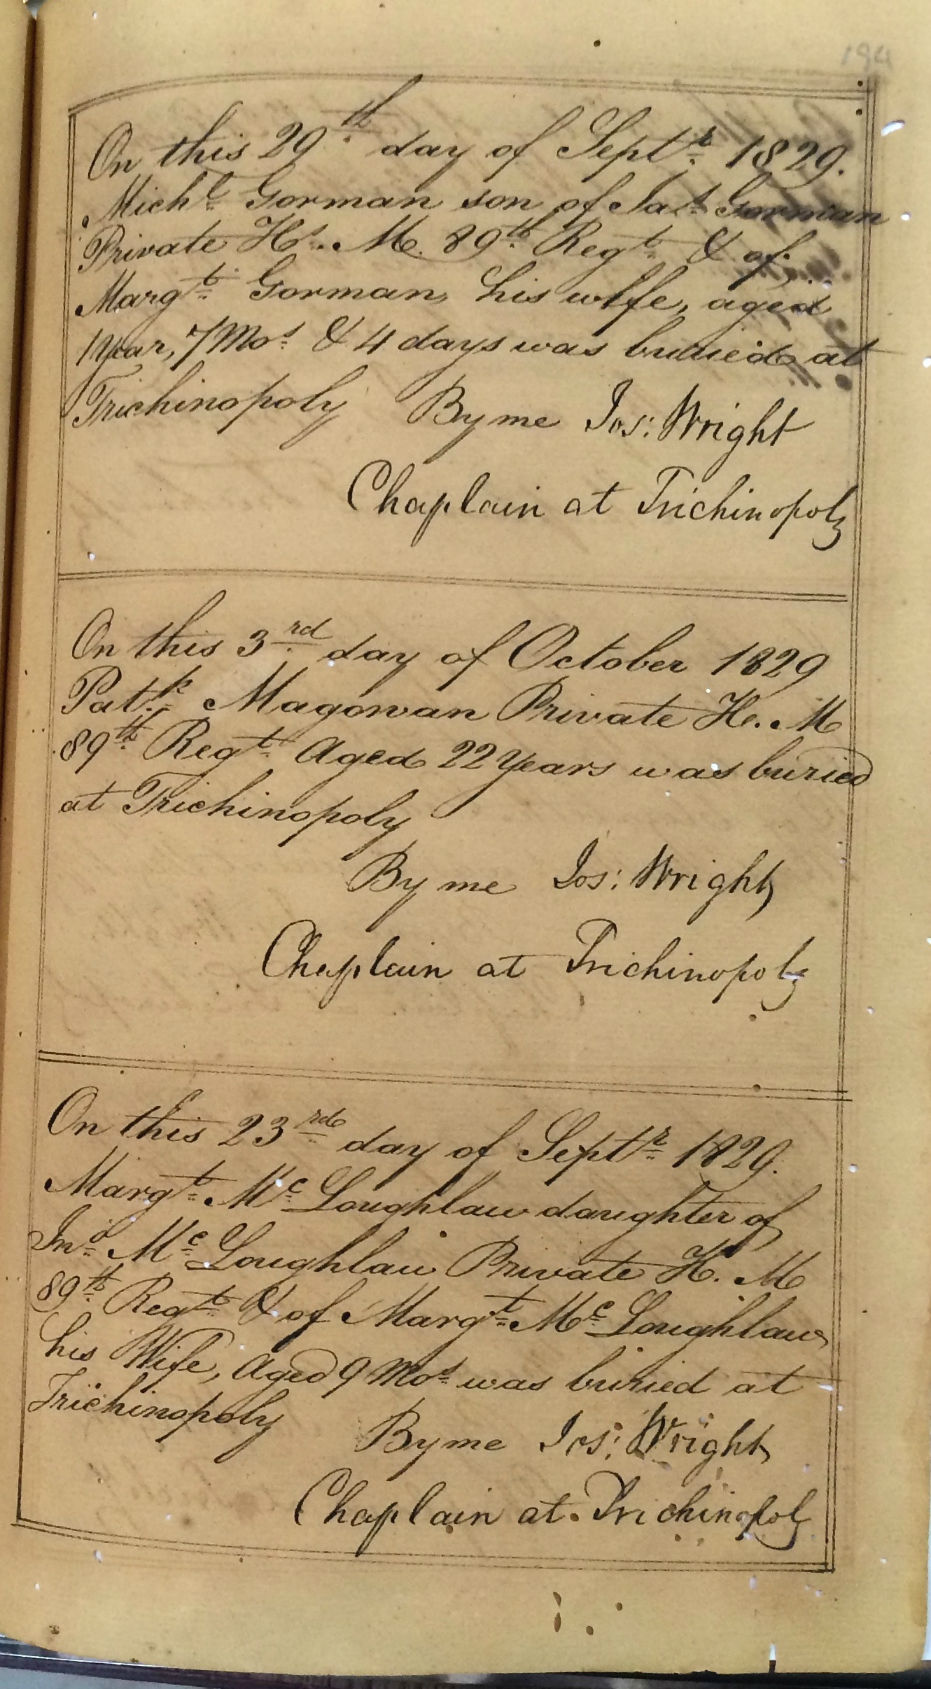 194
On this 29th day of Septr. 1829.
Michl. Gorman son of Jas. Gorman
Private H. M. 89th Regt. & of
Margt. Gorman, his wife, aged
1 Year, 7 Mos. & 4 days was buried at
Trichinopoly By me Jos: Wright
Chaplain at Trichinopoly
On this 3rd day of October 1829
Patk. Magowan Private H. M
89th Regt. Aged 22 Years was buried
at Trichinopoly
By me Jos: Wright
Chaplain at Trichinopoly
On this 23rd day of Septr. 1829.
Margt. Mc Loughlaw daughter of
Jno. Mc Loughlaw Private H. M
89th Regt. & of Margt. Mc Loughlaw
his Wife, Aged 9 Mos. was buried at
Trichinopoly By me Jos: Wright
Chaplain at Trichinopoly